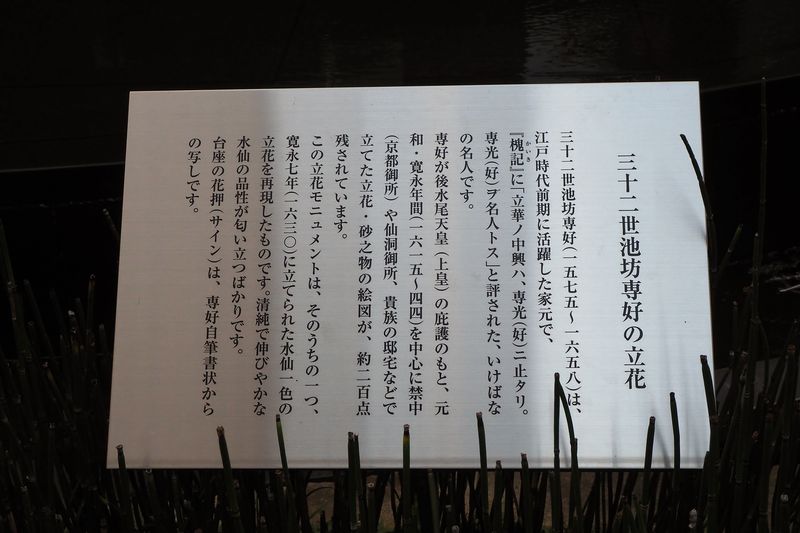 三十二世池坊専好の立花
三十二世池坊専好（一五七五〜一六五八）は、
江戸時代前期に活躍した家元で、
『槐記』に「立華ノ中興ハ、専光（好）ニ止タリ。
かいき
専光（好）ヲ名人トス」と評された、いけばな
の名人です。
専好が後水尾天皇（上皇）の庇護のもと、元
和・寛永年間（一六一五〜四四）を中心に禁中
（京都御所）や仙洞御所、貴族の邸宅などで
立てた立花・砂之物の絵図が、約二百点
残されています。
この立花モニュメントは、そのうちの一つ、
寛永七年（一六三〇）に立てられた水仙一色の
立花を再現したものです。清純で伸びやかな
水仙の品性が匂い立つばかりです。
台座の花押（サイン）は、専好自筆書状から
の写しです。